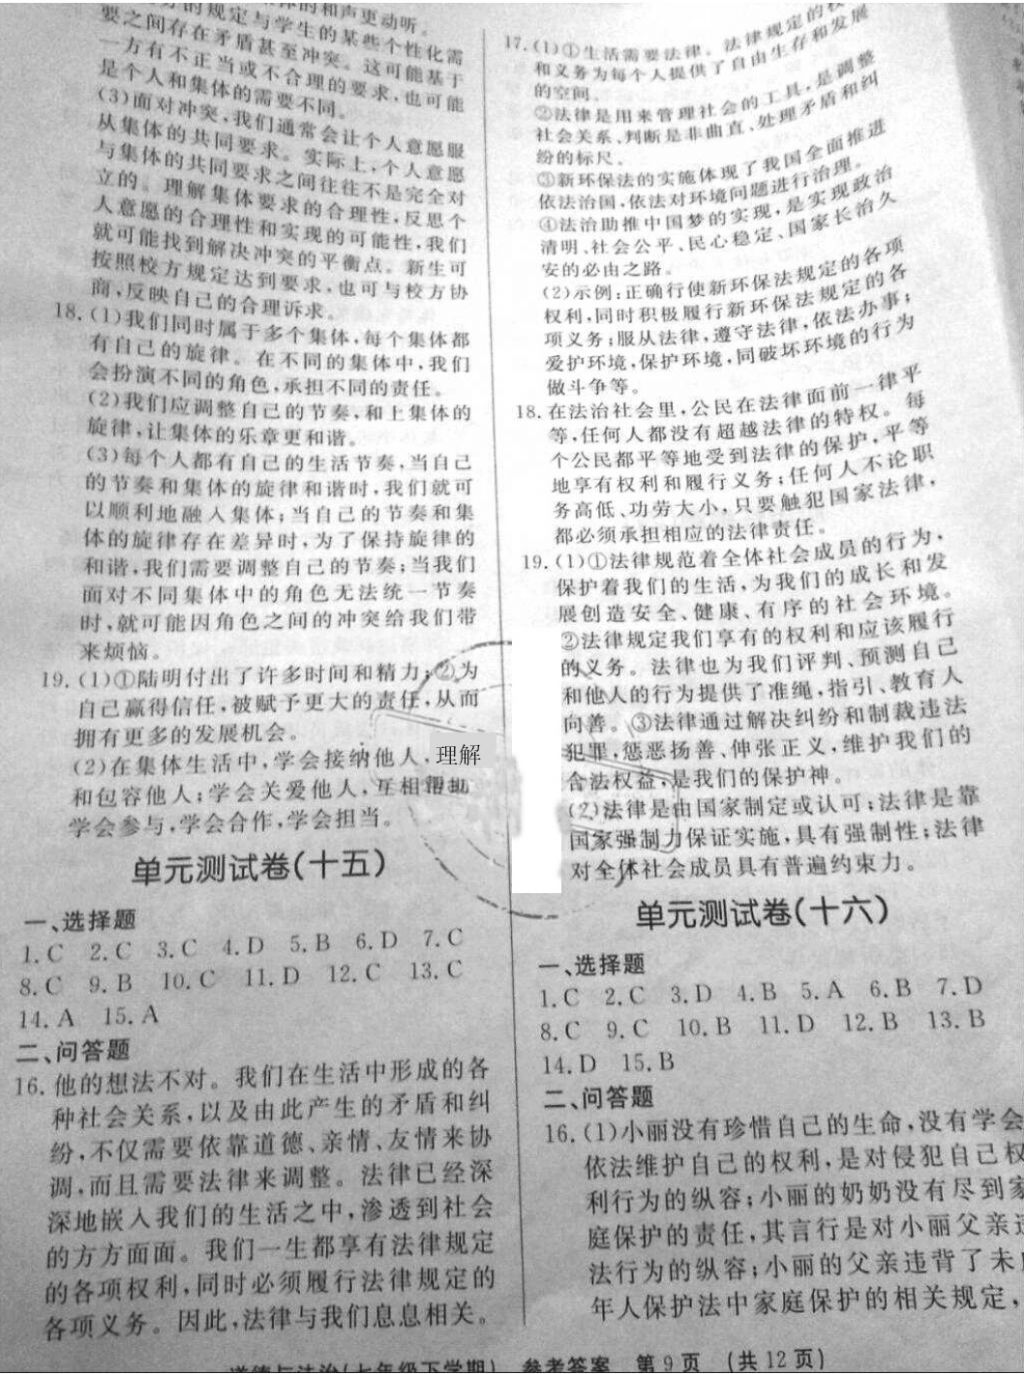 的规定与学生的某些个性化需
要之间存在矛盾甚至冲突。这可能基于
一方有不正当或不合理的要求,也可能
是个人和集体的需要不同。
(3)面对冲突,我们通常会让个人意愿服
从集体的共同要求。实际上,个人意愿
与集体的共同要求之间往往不是完全对
立的。理解集体要求的合理性,反思个
人意愿的合理性和实现的可能性,我们
就可能找到解决冲突的平衡点。新生可
按照校方规定达到要求,也可与校方协
商,反映自己的合理诉求。
18.(1)我们同时属于多个集体,每个集体都
有自己的旋律。在不同的集体中,我们
会扮演不同的角色,承担不同的责任。
(2)我们应调整自己的节奏,和上集体的
旋律,让集体的乐章更和谐。
(3)每个人都有自己的生活节奏,当自己
的节奏和集体的旋律和谐时,我们就可
以顺利地融入集体;当自己的节奏和集
体的旋律存在差异时,为了保持旋律的
和谐,我们需要调整自己的节奏;当我们
面对不同集体中的角色无法统一节奏
时,就可能因角色之间的冲突给我们带
来烦恼。
19.(1)①陆明付出了许多时间和精力;②为
自己赢得信任,被赋予更大的责任,从而
拥有更多的发展机会。
(2)在集体生活中,学会接纳他人,理解
和包容他人;学会关爱他人,互相帮助,
学会参与,学会合作,学会担当。
单元测试卷(十五)
一、选择题
1.C 2.C 3.C 4.D 5.B 6.D 7.C
8.C 9.B 10.C 11.D 12.C 13.C
14.A 15.A
二、问答题
16.他的想法不对。我们在生活中形成的各
种社会关系,以及由此产生的矛盾和纠
纷,不仅需要依靠道德、亲情、友情来协
调,而且需要法律来调整。法律已经深
深地嵌入我们的生活之中,渗透到社会
的方方面面。我们一生都享有法律规定
的各项权利,同时必须履行法律规定的
各项义务。因此,法律与我们息息相关。
17.(1)①生活需要法律。法律规定的权
和义务为每个人提供了自由生存和发展
的空间。
②法律是用来管理社会的工具,是调整
社会关系、判断是非曲直、处理矛盾和纠
纷的标尺。
③新环保法的实施体现了我国全面推进
依法治国,依法对环境问题进行治理。
④法治助推中国梦的实现,是实现政治
清明、社会公平、民心稳定、国家长治久
安的必由之路。
(2)示例:正确行使新环保法规定的各项
权利,同时积极履行新环保法规定的各
项义务;服从法律,遵守法律,依法办事;
爱护环境,保护环境,同破坏环境的行为
做斗争等。
18.在法治社会里,公民在法律面前一律平
等,任何人都没有超越法律的特权。每
个公民都平等地受到法律的保护,平等
地享有权利和履行义务;任何人不论职
务高低、功劳大小,只要触犯国家法律,
都必须承担相应的法律责任。
19.(1)①法律规范着全体社会成员的行为,
保护着我们的生活,为我们的成长和发
展创造安全、健康、有序的社会环境。
②法律规定我们享有的权利和应该履行
的义务。法律也为我们评判、预测自己
和他人的行为提供了准绳,指引、教育人
向善。③法律通过解决纠纷和制裁违法
犯罪,惩恶扬善、伸张正义,维护我们的
合法权益,是我们的保护神。
(2)法律是由国家制定或认可;法律是靠
国家强制力保证实施,具有强制性;法律
对全体社会成员具有普遍约束力。
单元测试卷(十六)
一、选择题
1.C 2.C 3.D 4.B 5.A 6.B 7.D
8.C 9.C 10.B 11.D 12.B 13.B
14.D 15.B
二、问答题
16.(1)小丽没有珍惜自己的生命,没有学会
依法维护自己的权利,是对侵犯自己权
利行为的纵容;小丽的奶奶没有尽到家
庭保护的责任,其言行是对小丽父亲违
法行为的纵容;小丽的父亲违背了未
年人保护法中家庭保护的相关规定,
道德与法治(七年级下学期) 参考答案 第9页 (共12页)